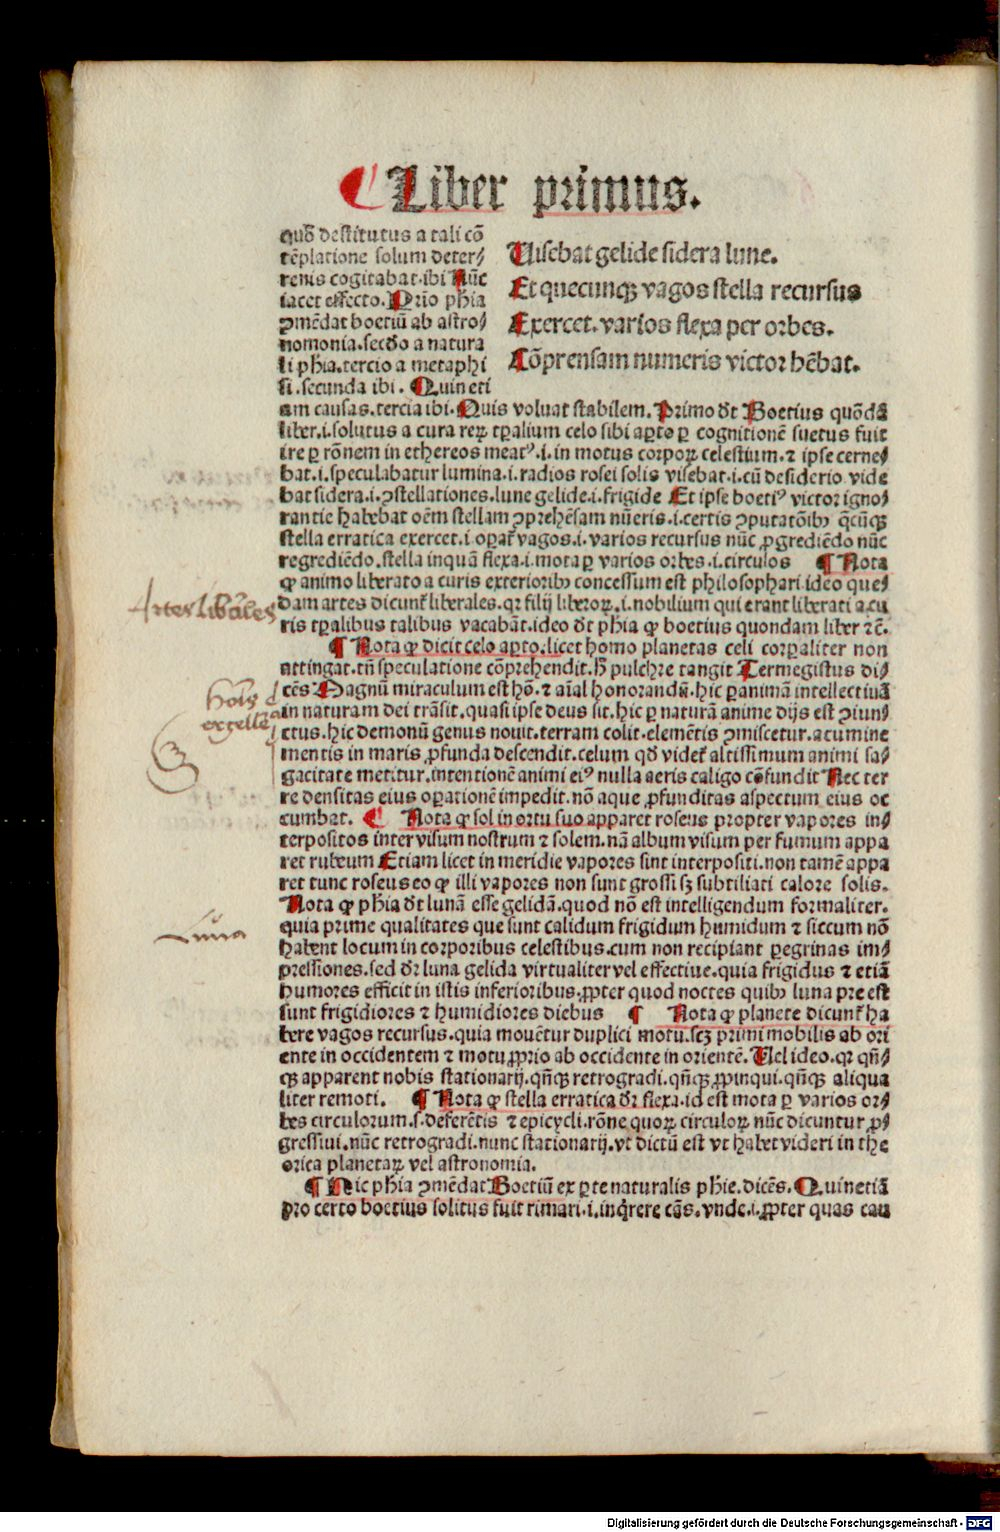 Liber primus.
quod destitutus a tali cō
tēplatione solum deter/
renis cogitabat.ibi Nūc
iacet effecto. Prīo ph̄ia
ꝯmēdat boetiū ab astro/
nomonia.secūdo a natura
li phīa.tercio a metaphi
si.secunda ibi. Quin eti
Uisebat gelide sidera lune.
Et quecunqꝫ vagos stella recursus
Exercet.varios flexa per orbes.
Cōprensam numeris victor hēbat.
am causas.tercia ibi. Quis voluat stabilem. Primo dt Boetius quōdā
liber.i.solutus a cura reꝝ tꝑalium celo sibi aꝑto ꝑ cognitionē suetus fuit
ire ꝑ rōnem in ethereos meatꝰ.i.in motus corpoꝝ celestium.⁊ ipse cerne/
bat.i.speculabatur lumina.i.radios rosei solis visebat.i.cū desiderio vide
bat sidera.i.ꝯstellationes.lune gelide.i.frigide Et ipse boetiꝰ victor igno/
rantie habebat oēm stellam ꝯprehēsam nūeris.i.certis ꝯputatōibꝫ q̄cūqꝫ
stella erratica exercet.i oꝑat vagos.i.varios recursus nūc ꝓgrediēdo nūc
regrediēdo.stella inquā flexa.i.mota ꝑ varios orbes.i.circulos ¶ Nota
ꝙ animo liberato a curis exterioribꝫ concessum est philosophari ideo que/
dam artes dicunt liberales.qꝛ filij liberoꝝ.i.nobilium qui erant liberati a cu
ris tꝑalibus talibus vacabāt.ideo dt phīa ꝙ boetius quondam liber ⁊c̄.
¶ Nota ꝙ dicit celo aꝑto.licet homo planetas celi corꝑaliter non
attingat.tn̄ speculatione cōprehendit.H̄ pulchre tangit Termegistus di/
cēs Magnū miraculum est hō.⁊ aīal honorandū.hic ꝑ animā intellectiuā
in naturam dei trāsit.quasi ipse deus sit.hic ꝑ naturā anime dijs est ꝯiun/
ctus.hic demonū genus nouit.terram colit.elemētis ꝯmiscetur.acumine
mentis in maris ꝓfunda descendit.celum qd̄ videt altissimum animi sa/
gacitate metitur.intentionē animi eiꝰ nulla aeris caligo cōfundit Nec ter
re densitas eius oꝑationē impedit.nō aque ꝓfunditas aspectum eius oc
cumbat. ¶ Nota ꝙ sol in ortu suo apparet roseus propter vapores in/
terpositos inter visum nostrum ⁊ solem.nā album visum per fumum appa
ret rubeum Etiam licet in meridie vapores sint interpositi.non tamē appa
ret tunc roseus eo ꝙ illi vapores non sunt grossi sꝫ subtiliati calore solis.
Nota ꝙ phīa dt lunā esse gelidā.quod nō est intelligendum formaliter.
quia prime qualitates que sunt calidum frigidum humidum ⁊ siccum nō
habent locum in corporibus celestibus.cum non recipiant ꝑegrinas im/
pressiones.sed dr luna gelida virtualiter vel effectiue.quia frigidus ⁊ etiā
humores efficit in istis inferioribus.ꝓpter quod noctes quibꝫ luna pre est
sunt frigidiores ⁊ humidiores diebus ¶ Nota ꝙ planete dicunt ha
bere vagos recursus.quia mouētur duplici motu.scꝫ primi mobilis ab ori
ente in occidentem ⁊ motu ꝓprio ab occidente in orientē. Uel ideo.qꝛ qn̄/
qꝫ apparent nobis stationarij.qn̄qꝫ retrogradi.qn̄qꝫ ꝓpinqui.qn̄qꝫ aliqua
liter remoti. ¶ Nota ꝙ stella erratica dr flexa.id est mota ꝑ varios or/
bes circulorum.s.deferētis ⁊ epicycli.rōne quoꝝ circuloꝝ nūc dicuntur ꝓ/
gressiui.nūc retrogradi.nunc stationarij.vt dictū est vt habet videri in the
orica planetaꝝ vel astronomia.
¶ Hic phīa ꝯmēdat Boetiū ex ꝑte naturalis phie.dicēs. Quin etiā
pro certo boetius solitus fuit rimari.i.inq̄rere cās.vnde.i.ꝓpter quas cau
Artes liberales
Hoīs
excellē
Luna
Digitalisierung gefördert durch die Deutsche Forschungsgemeinschaft - DFG